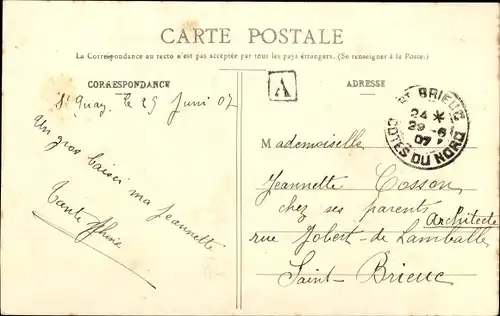 CARTE POSTALE
La Correspondance au recto n'est pas acceptée par tous les pays étrangers. (Se renseigner à la Poste.)
CORRESPONDANCE
St Quay, le 29 Juni 07
Un gros baiser ma Jeannette
Tante
A
ADRESSE
ST BRIEUC
24 *
29 - 6
07
COTES DU NORD
Mademoiselle
Jeannette Cosson
chez ses parents
Architecte
rue Jobert-de Lamballe
Saint-Brieuc